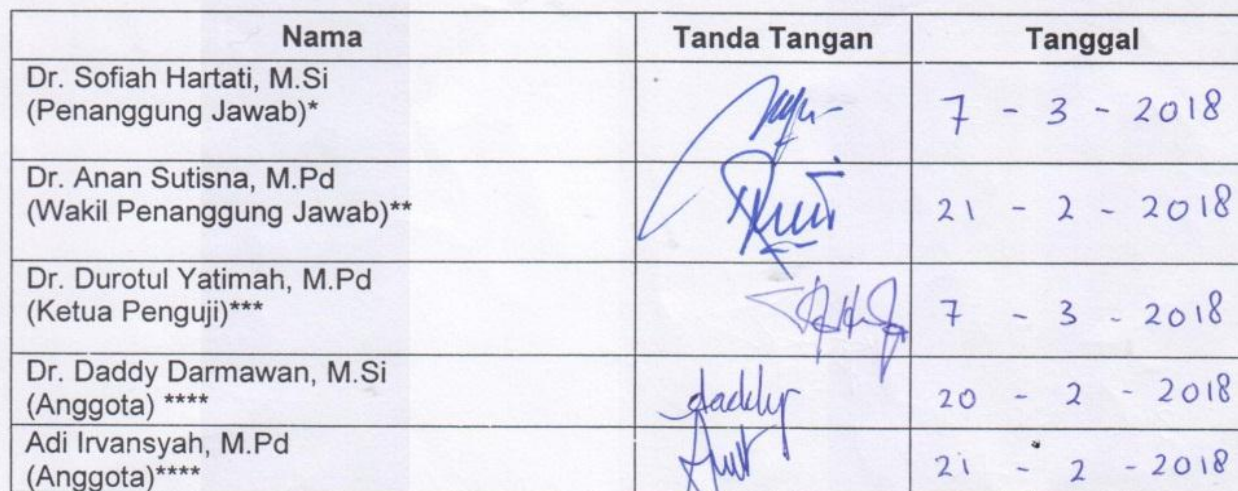 Nama Tanda Tangan Tanggal
Dr. Sofiah Hartati, M.Si
(Penanggung Jawab)* 7 - 3 - 2018
Dr. Anan Sutisna, M.Pd
(Wakil Penanggung Jawab)** 21 - 2 - 2018
Dr. Durotul Yatimah, M.Pd
(Ketua Penguji)*** 7 - 3 - 2018
Dr. Daddy Darmawan, M.Si
(Anggota) **** daddy 20 - 2 - 2018
Adi Irvansyah, M.Pd
(Anggota)**** 21 - 2 - 2018